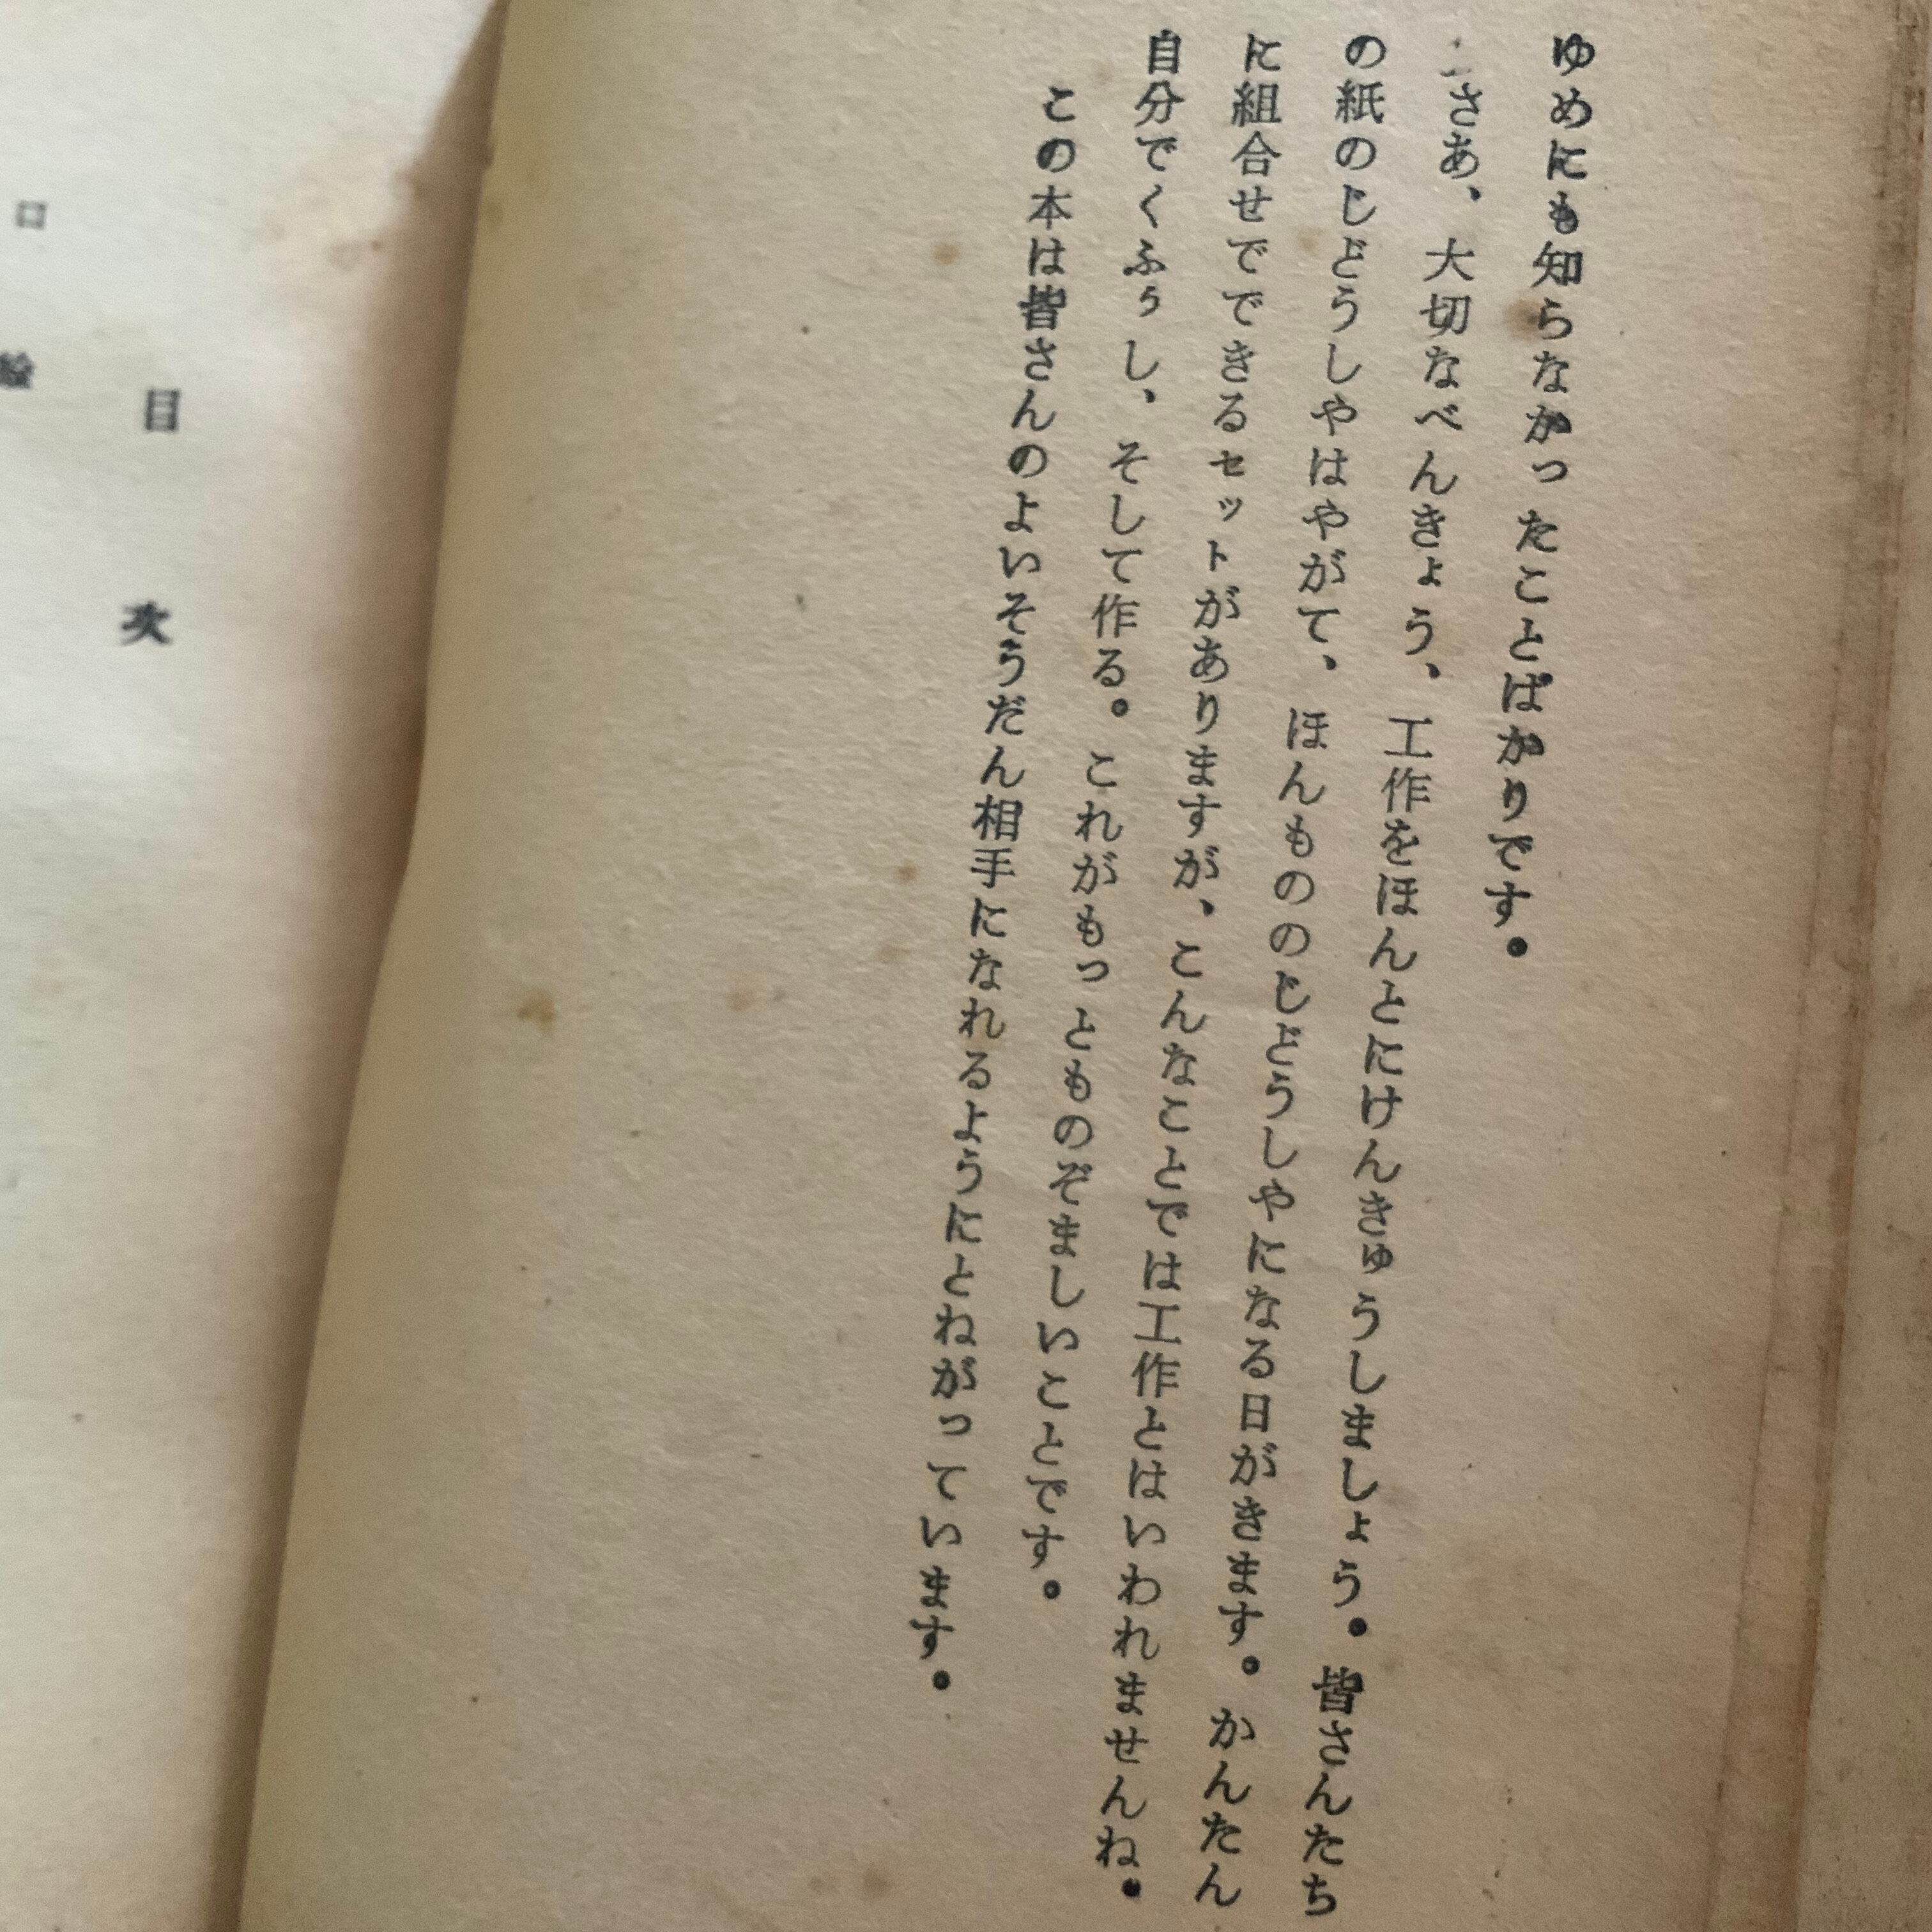 ゆめにも知らなかったことばかりです。
さあ、大切なべんきょう、工作をほんとにけんきゅうしましょう。皆さんたち
の紙のじどうしやはやがて、ほんもののじどうしやになる日がきます。かんたん
に組合せでできるセットがありますが、こんなことでは工作とはいわれませんね。
自分でくふぅし、そして作る。これがもっとものぞましいことです。
この本は皆さんのよいそうだん相手になれるようにとねがっています。
目次
口絵